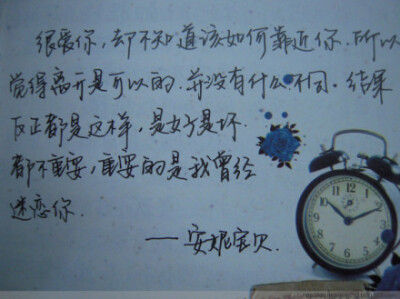 很爱你，却不知道该如何靠近你．所以
觉得离开是可以的．并没有什么不同．结果
反正都是这样，是好是坏
都不重要，重要的是我曾经
迷恋你．
——安妮宝贝．